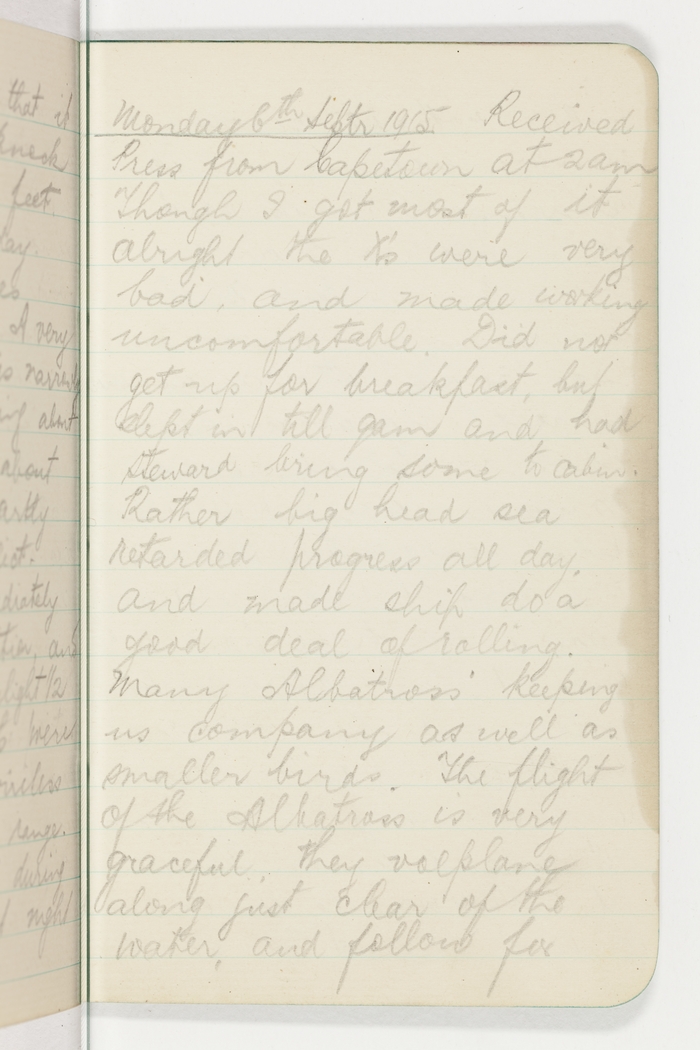 that it
knech
feet
lay.
es
A very
is narrow
ing about
about
artly
lict.
diately
tion, and
light 1/2
s were
wireless
range.
during
t night
Monday 6th Septr 1915. Received
Press from Capetown at 2am
Though I got most of it
alright the X's were very
bad, and made working
uncomfortable. Did not
get up for breakfast, but
slept in till 9am and had
steward bring some to cabin.
Rather big head sea
retarded progress all day,
and made ship do a
good deal of rolling.
Many Albatross' keeping
us company as well as
smaller birds. The flight
of the Albatross is very
graceful, they volplane
along just clear of the
water, and follow for